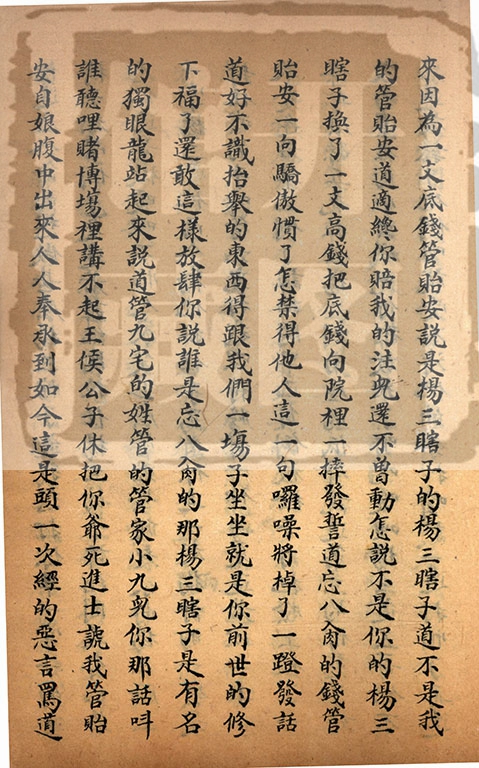 來因為一文底錢管貽安說是楊三瞎子的楊三瞎子道不是我
的管貽安道適纔你賠我的注兒還不曾動怎說不是你的楊三
瞎子換了一文高錢把底錢向院裡一摔發誓道忘八肏的錢管
貽安一向驕傲慣了怎禁得他人這一句囉噪將掉了一蹬發話
道好不識抬舉的東西得跟我們一塲子坐坐就是你前世的修
下福了還敢這樣放肆你說誰是忘八肏的那楊三瞎子是有名
的獨眼龍站起來說道管九宅的姓管的管家小九兒你那話呌
誰聽哩賭博塲裡講不起王侯公子休把你爺死進士諕我管貽
安自娘腹中出來人人奉承到如今這是頭一次經的惡言罵道